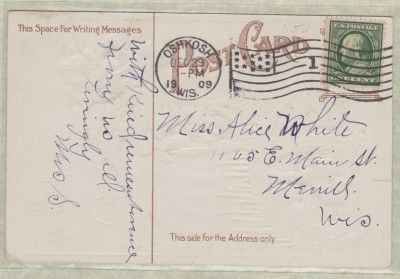 This Space For Writing Messages
POST CARD
OSHKOSH
DEC 29
-PM
1909
WIS.
1
U.S. POSTAGE
ONE CENT
With Kind remembrance
from us all
Lovingly
Mrs S.
Miss Alice White
1165 E. Main St.
Merrill.
Wis.
This side for the Address only.